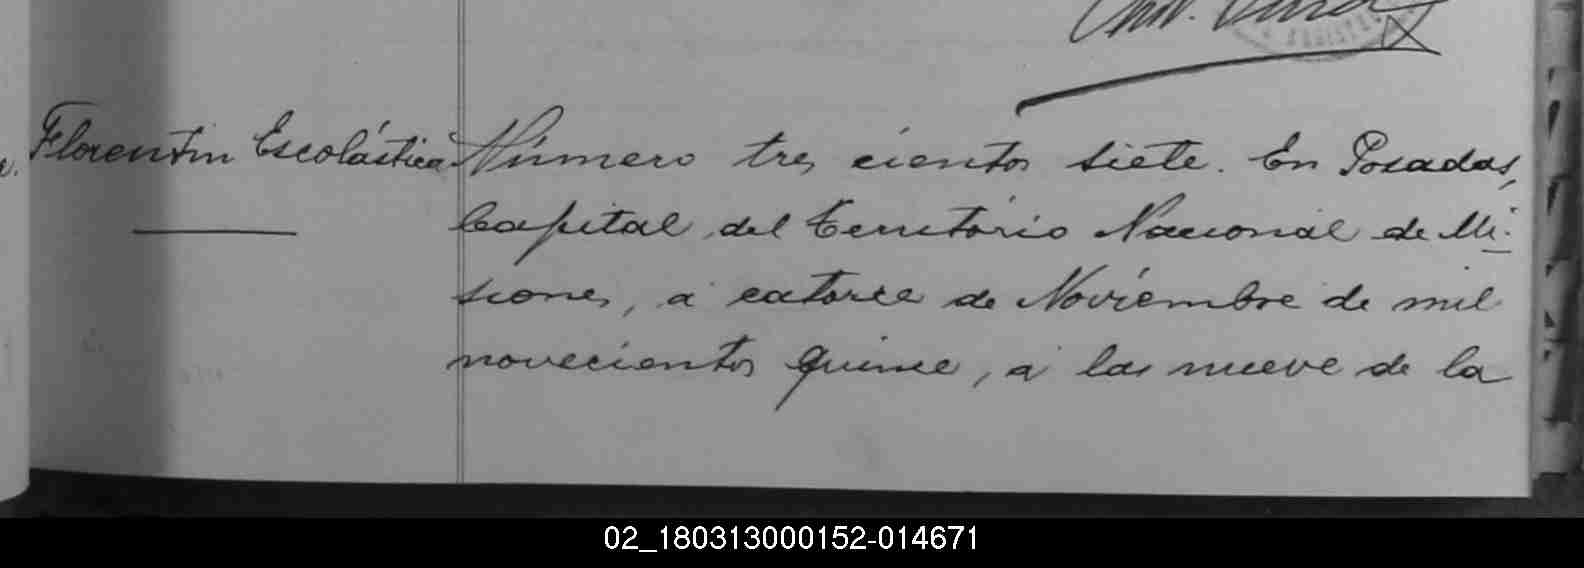 Florentin Escolástica
Número tres cientos siete. En Posadas,
Capital del Territorio Nacional de Mi-
siones, a catorce de Noviembre de mil
novecientos quince, a las nueve de la
02_180313000152-014671